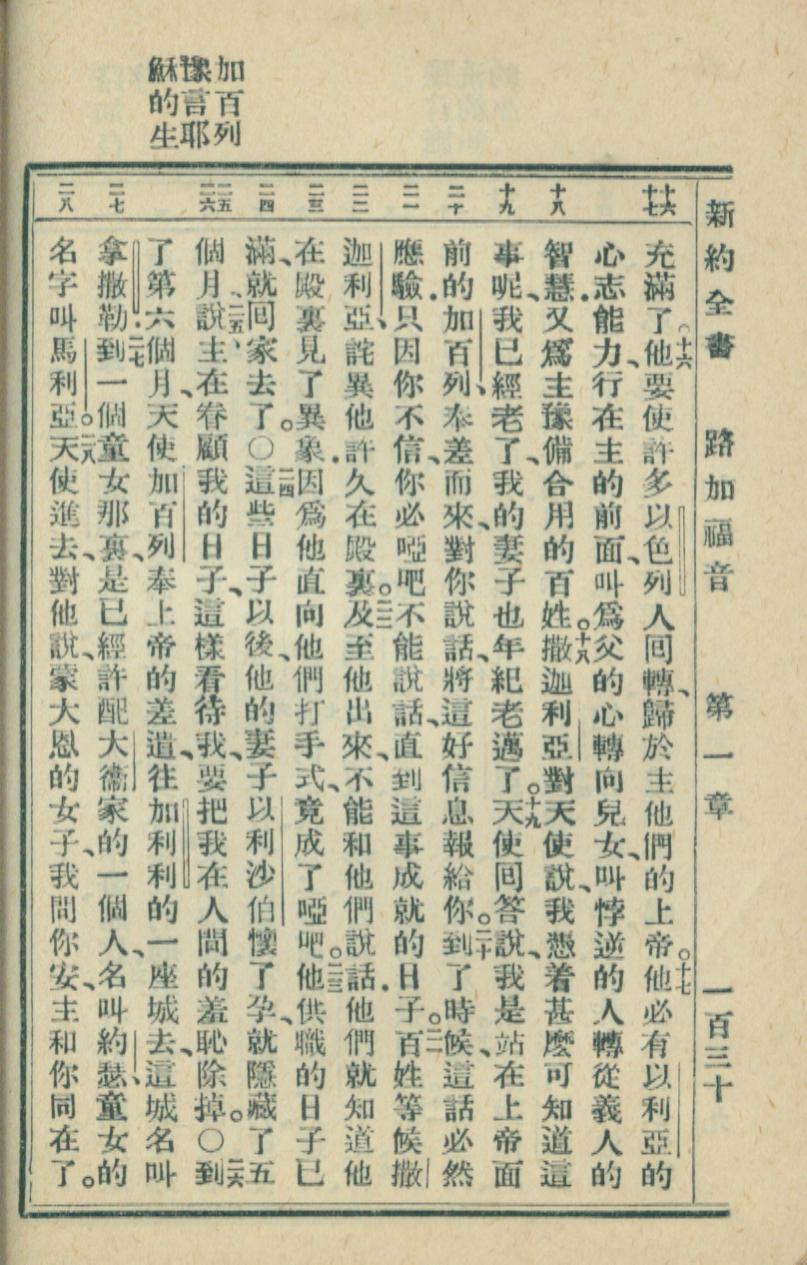 新約全書 路加福音 第一章 一百三十
加百列
豫言耶
穌的生
十六
十七
十八
十九
二十
二一
二二
二三
二四
二五
二六
二七
二八
充滿了。十六他要使許多以色列人回轉、歸於主他們的上帝。十七他必有以利亞的
心志能力、行在主的前面、叫爲父的心轉向兒女、叫悖逆的人轉從義人的
智慧.又爲主豫備合用的百姓。十八撒迦利亞對天使說、我憑着甚麼可知道這
事呢、我已經老了、我的妻子也年紀老邁了。十九天使回答說、我是站在上帝面
前的加百列、奉差而來、對你說話、將這好信息報給你。二十到了時候、這話必然
應驗.只因你不信、你必啞吧不能說話、直到這事成就的日子。二一百姓等候撒
迦利亞、詫異他許久在殿裏。二二及至他出來、不能和他們說話.他們就知道他
在殿裏見了異象.因爲他直向他們打手式、竟成了啞吧。二三他供職的日子已
滿、就回家去了。〇二四這些日子以後、他的妻子以利沙伯懷了孕、就隱藏了五
個月、二五說、主在眷顧我的日子、這樣看待我、要把我在人間的羞恥除掉。〇二六到
了第六個月、天使加百列奉上帝的差遣、往加利利的一座城去、這城名叫
拿撒勒.二七到一個童女那裏、是已經許配大衞家的一個人、名叫約瑟、童女的
名字叫馬利亞。二八天使進去、對他說、蒙大恩的女子、我問你安、主和你同在了。